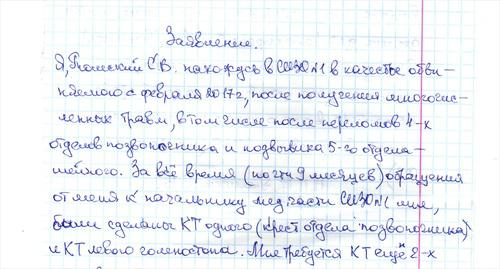 Заявление.
Я, Рюмский С.В. нахожусь в СИЗО №1 в качестве обви-
няемого с февраля 2017г, после получения многочис-
ленных травм, в том числе после переломов 4-х
отделов позвоночника и подвывиха 5-го отдела -
шейного. За всё время (почти 9 месяцев) обращения
от меня к начальнику мед части СИЗО №1 мне,
были сделаны КТ одного (крест отдела позвоночника)
и КТ левого голеностопа. Мне требуется КТ ещё 2-х